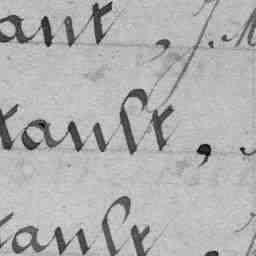 ant, J. M
tault,
tault,